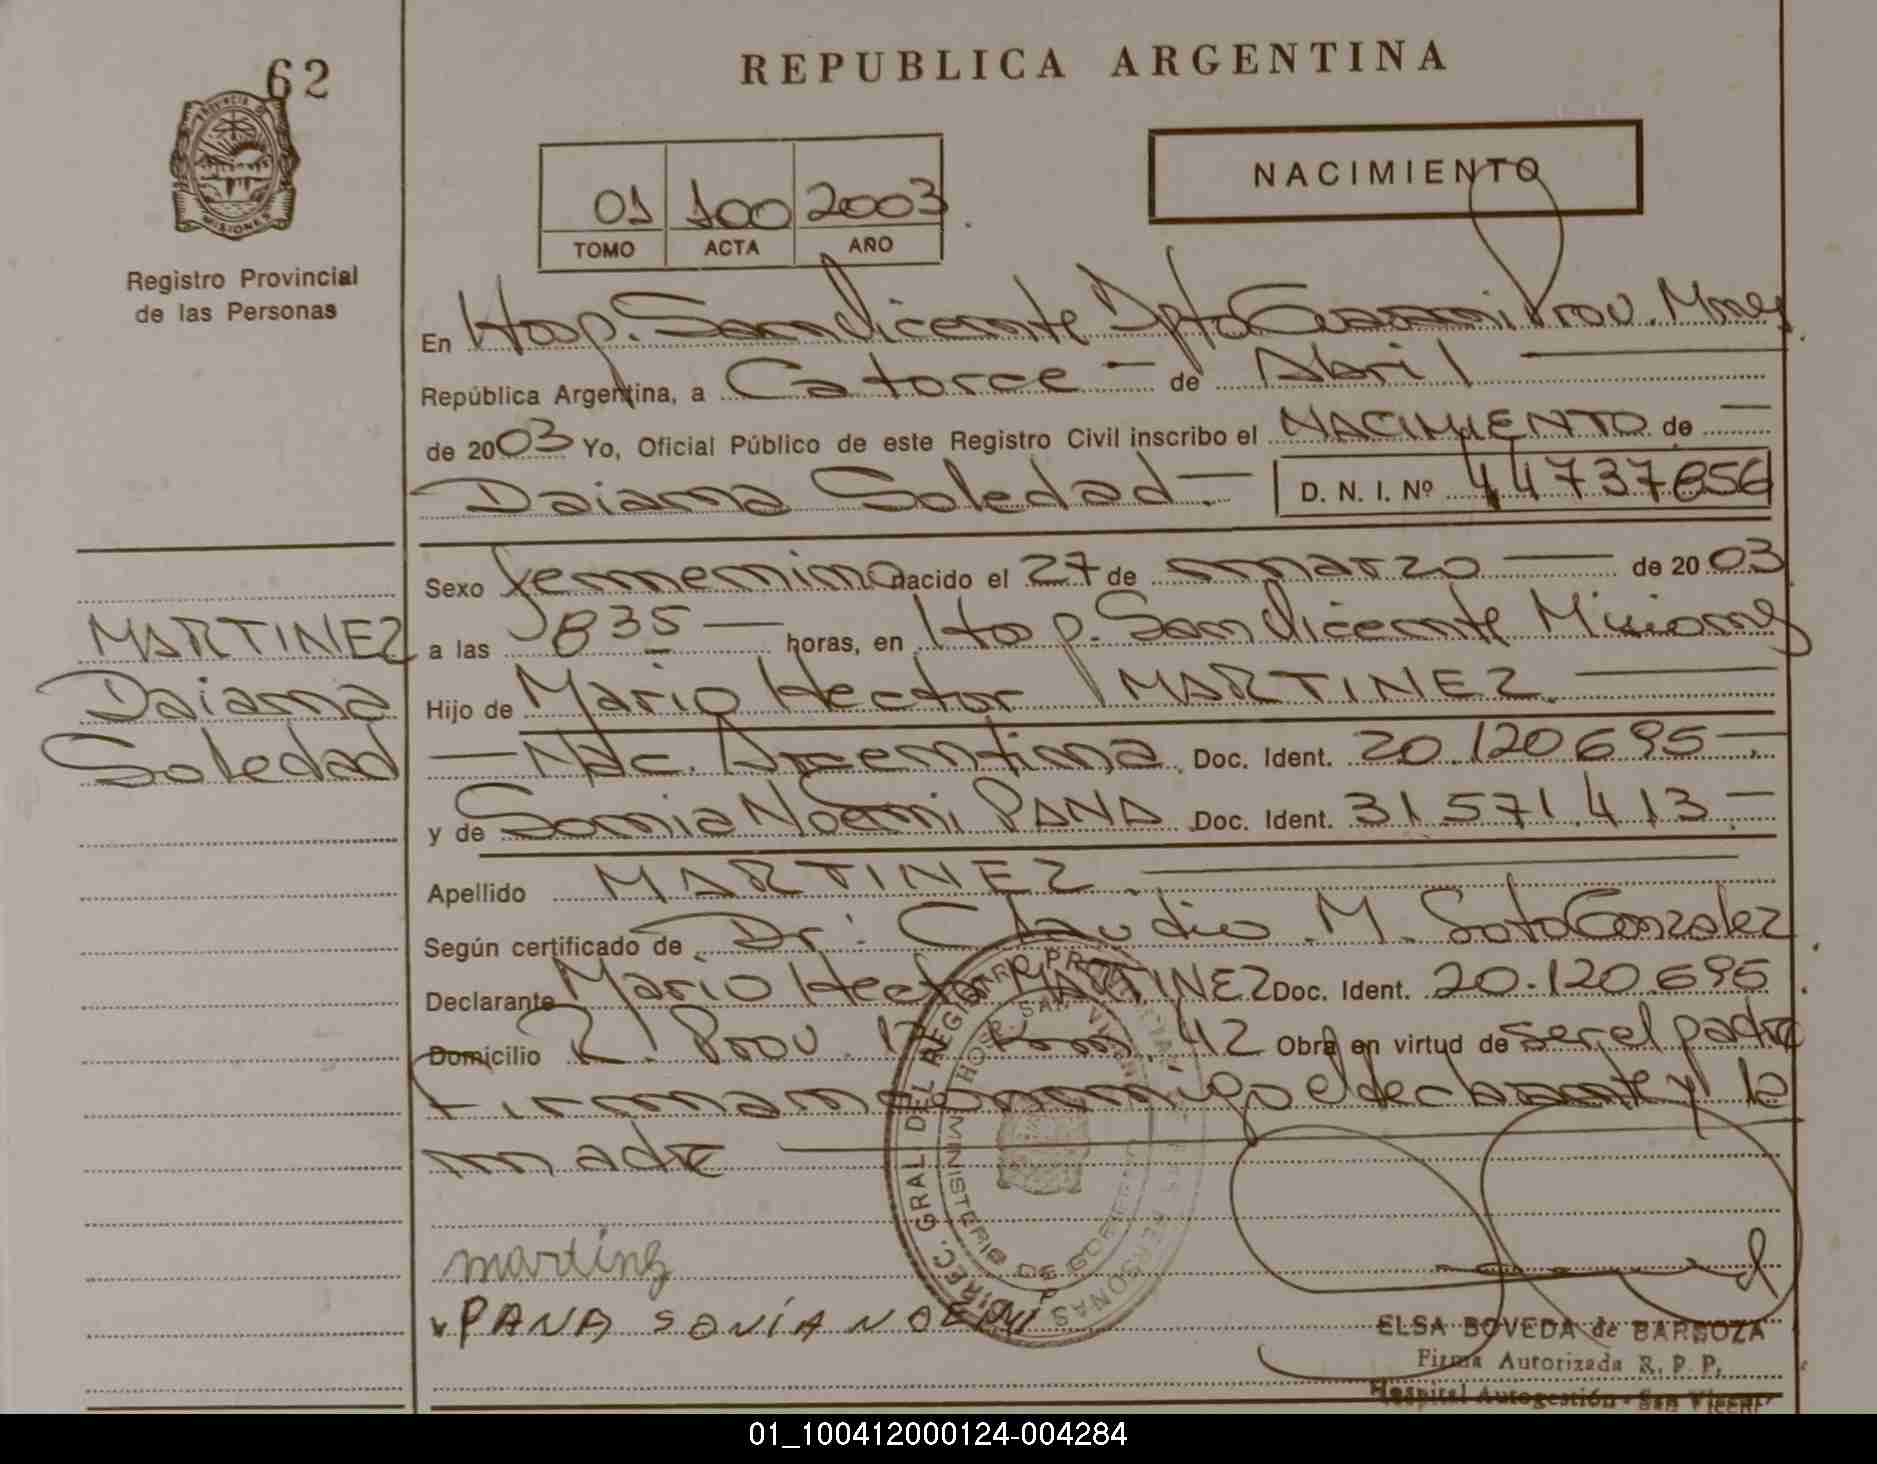 62
REPUBLICA ARGENTINA
PROVINCIA DE MISIONES
Registro Provincial
de las Personas
NACIMIENTO
01 100 2003
TOMO ACTA AÑO
En Hosp. San Vicente Dpto Guarani Prov. Mnes
República Argentina, a Catorce — de Abril —
de 2003 Yo, Oficial Público de este Registro Civil inscribo el NACIMIENTO de —
Daiana Soledad — D. N. I. Nº 44737856
Sexo femenino nacido el 27 de marzo — de 2003
a las 835 — horas, en Hosp. San Vicente Misiones
Hijo de Mario Hector MARTINEZ —
— Nac. Argentina Doc. Ident. 20.120.695 —
y de Sonia Noemi PANA Doc. Ident. 31.571.413 —
Apellido MARTINEZ —
Según certificado de Dr. Claudio M. Soto Gonzalez
Declarante Mario Hector MARTINEZ Doc. Ident. 20.120.695
Domicilio R. Prov. 17 Km. 42 Obra en virtud de ser el padre
Firman conmigo el declarante y la
madre —
MARTINEZ
Daiana
Soledad
martinz
PANA SONÍA NOEMI
DIREC. GRAL DEL REGISTRO PROVINCIAL DE LAS PERSONAS
HOSP. SAN VICENTE
MINISTERIO DE GOBIERNO
ELSA BOVEDA de BARBOZA
Firma Autorizada R. P. P.
Hospital Autogestión - San Vicente
01_100412000124-004284